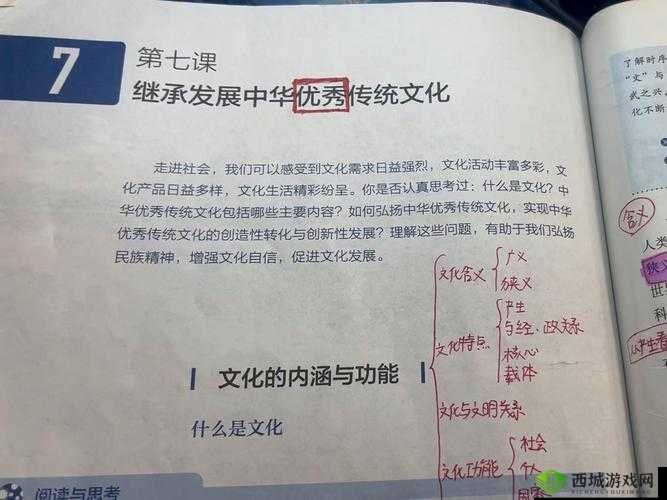 7
第七课
继承发展中华优秀传统文化
走进社会，我们可以感受到文化需求日益强烈，文化活动丰富多彩，文
化产品日益多样，文化生活精彩纷呈。你是否认真思考过：什么是文化？中
华优秀传统文化包括哪些主要内容？如何弘扬中华优秀传统文化，实现中华
优秀传统文化的创造性转化与创新性发展？理解这些问题，有助于我们弘扬
民族精神，增强文化自信，促进文化发展。
文化含义
广义
狭义
文化特点
产生
与经、政关系
核心
载体
文化与文明关系
文化功能
社会
个人
国家
文化的内涵与功能
什么是文化
阅读与思考
了解时序
“文”与
武之兴，
化不断
含义
人类
狭义
世
科
从产生看
西城游戏网
XICHENGYOUXIWANG